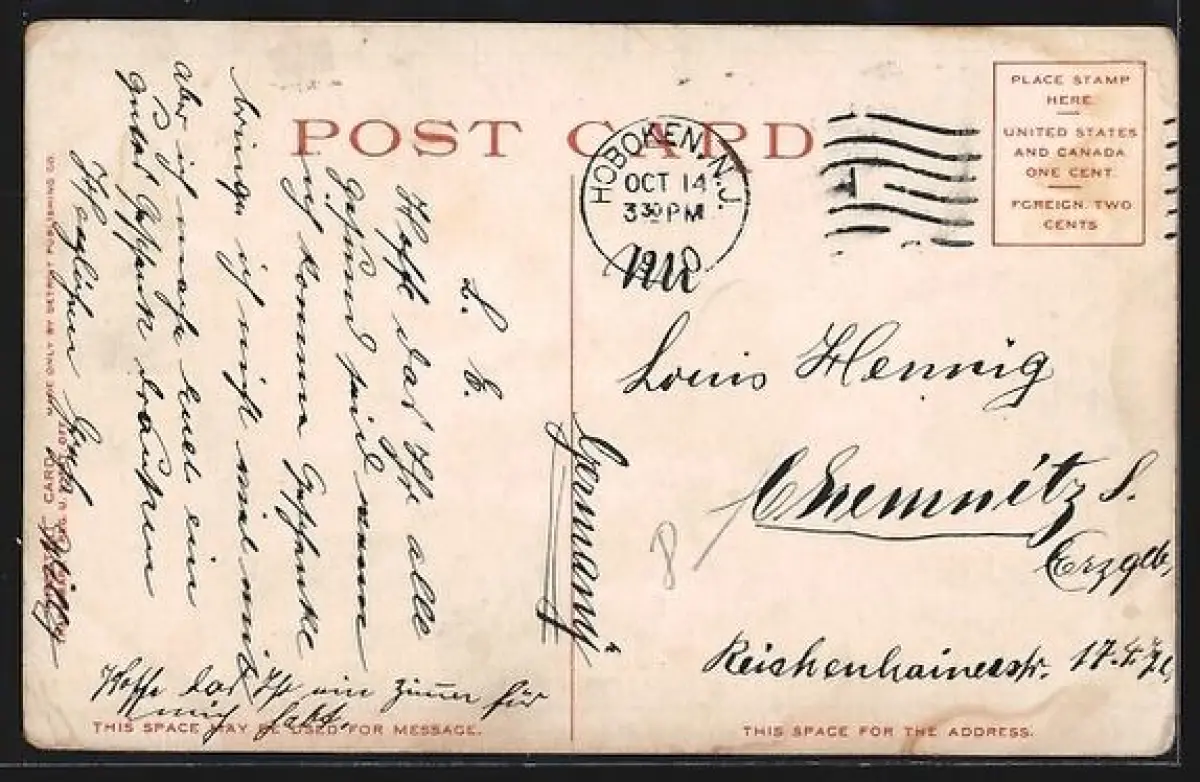 POST CARD
HOBOKEN, N.J.
OCT 14
3 30 PM
PLACE STAMP
HERE
UNITED STATES
AND CANADA
ONE CENT.
FOREIGN. TWO
CENTS
L. E.
Hoffe das Ihr alle
gesund seid wenn
ich komme Geschenke
bringe ich nicht viel mit
aber ich mache Euch ein
gutes
Gruß Willy
Hoffe das Ihr ein Zimmer für
mich habt.
Louis Hennig
Chemnitz S.
Erzgeb.
Reichenhainerstr. 17
Germany
8
MADE ONLY BY DETROIT PUBLISHING CO.
THIS SPACE MAY BE USED FOR MESSAGE.
THIS SPACE FOR THE ADDRESS.